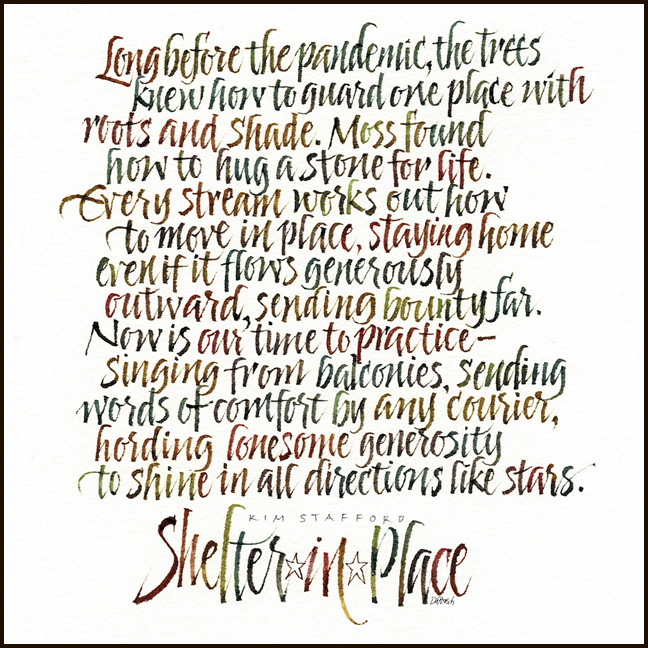 Long before the pandemic, the trees
knew how to guard one place with
roots and shade. Moss found
how to hug a stone for life.
Every stream works out how
to move in place, staying home
even if it flows generously
outward, sending bounty far.
Now is our time to practice–
singing from balconies, sending
words of comfort by any courier,
hording lonesome generosity
to shine in all directions like stars.
KIM STAFFORD
Shelter☆in☆Place